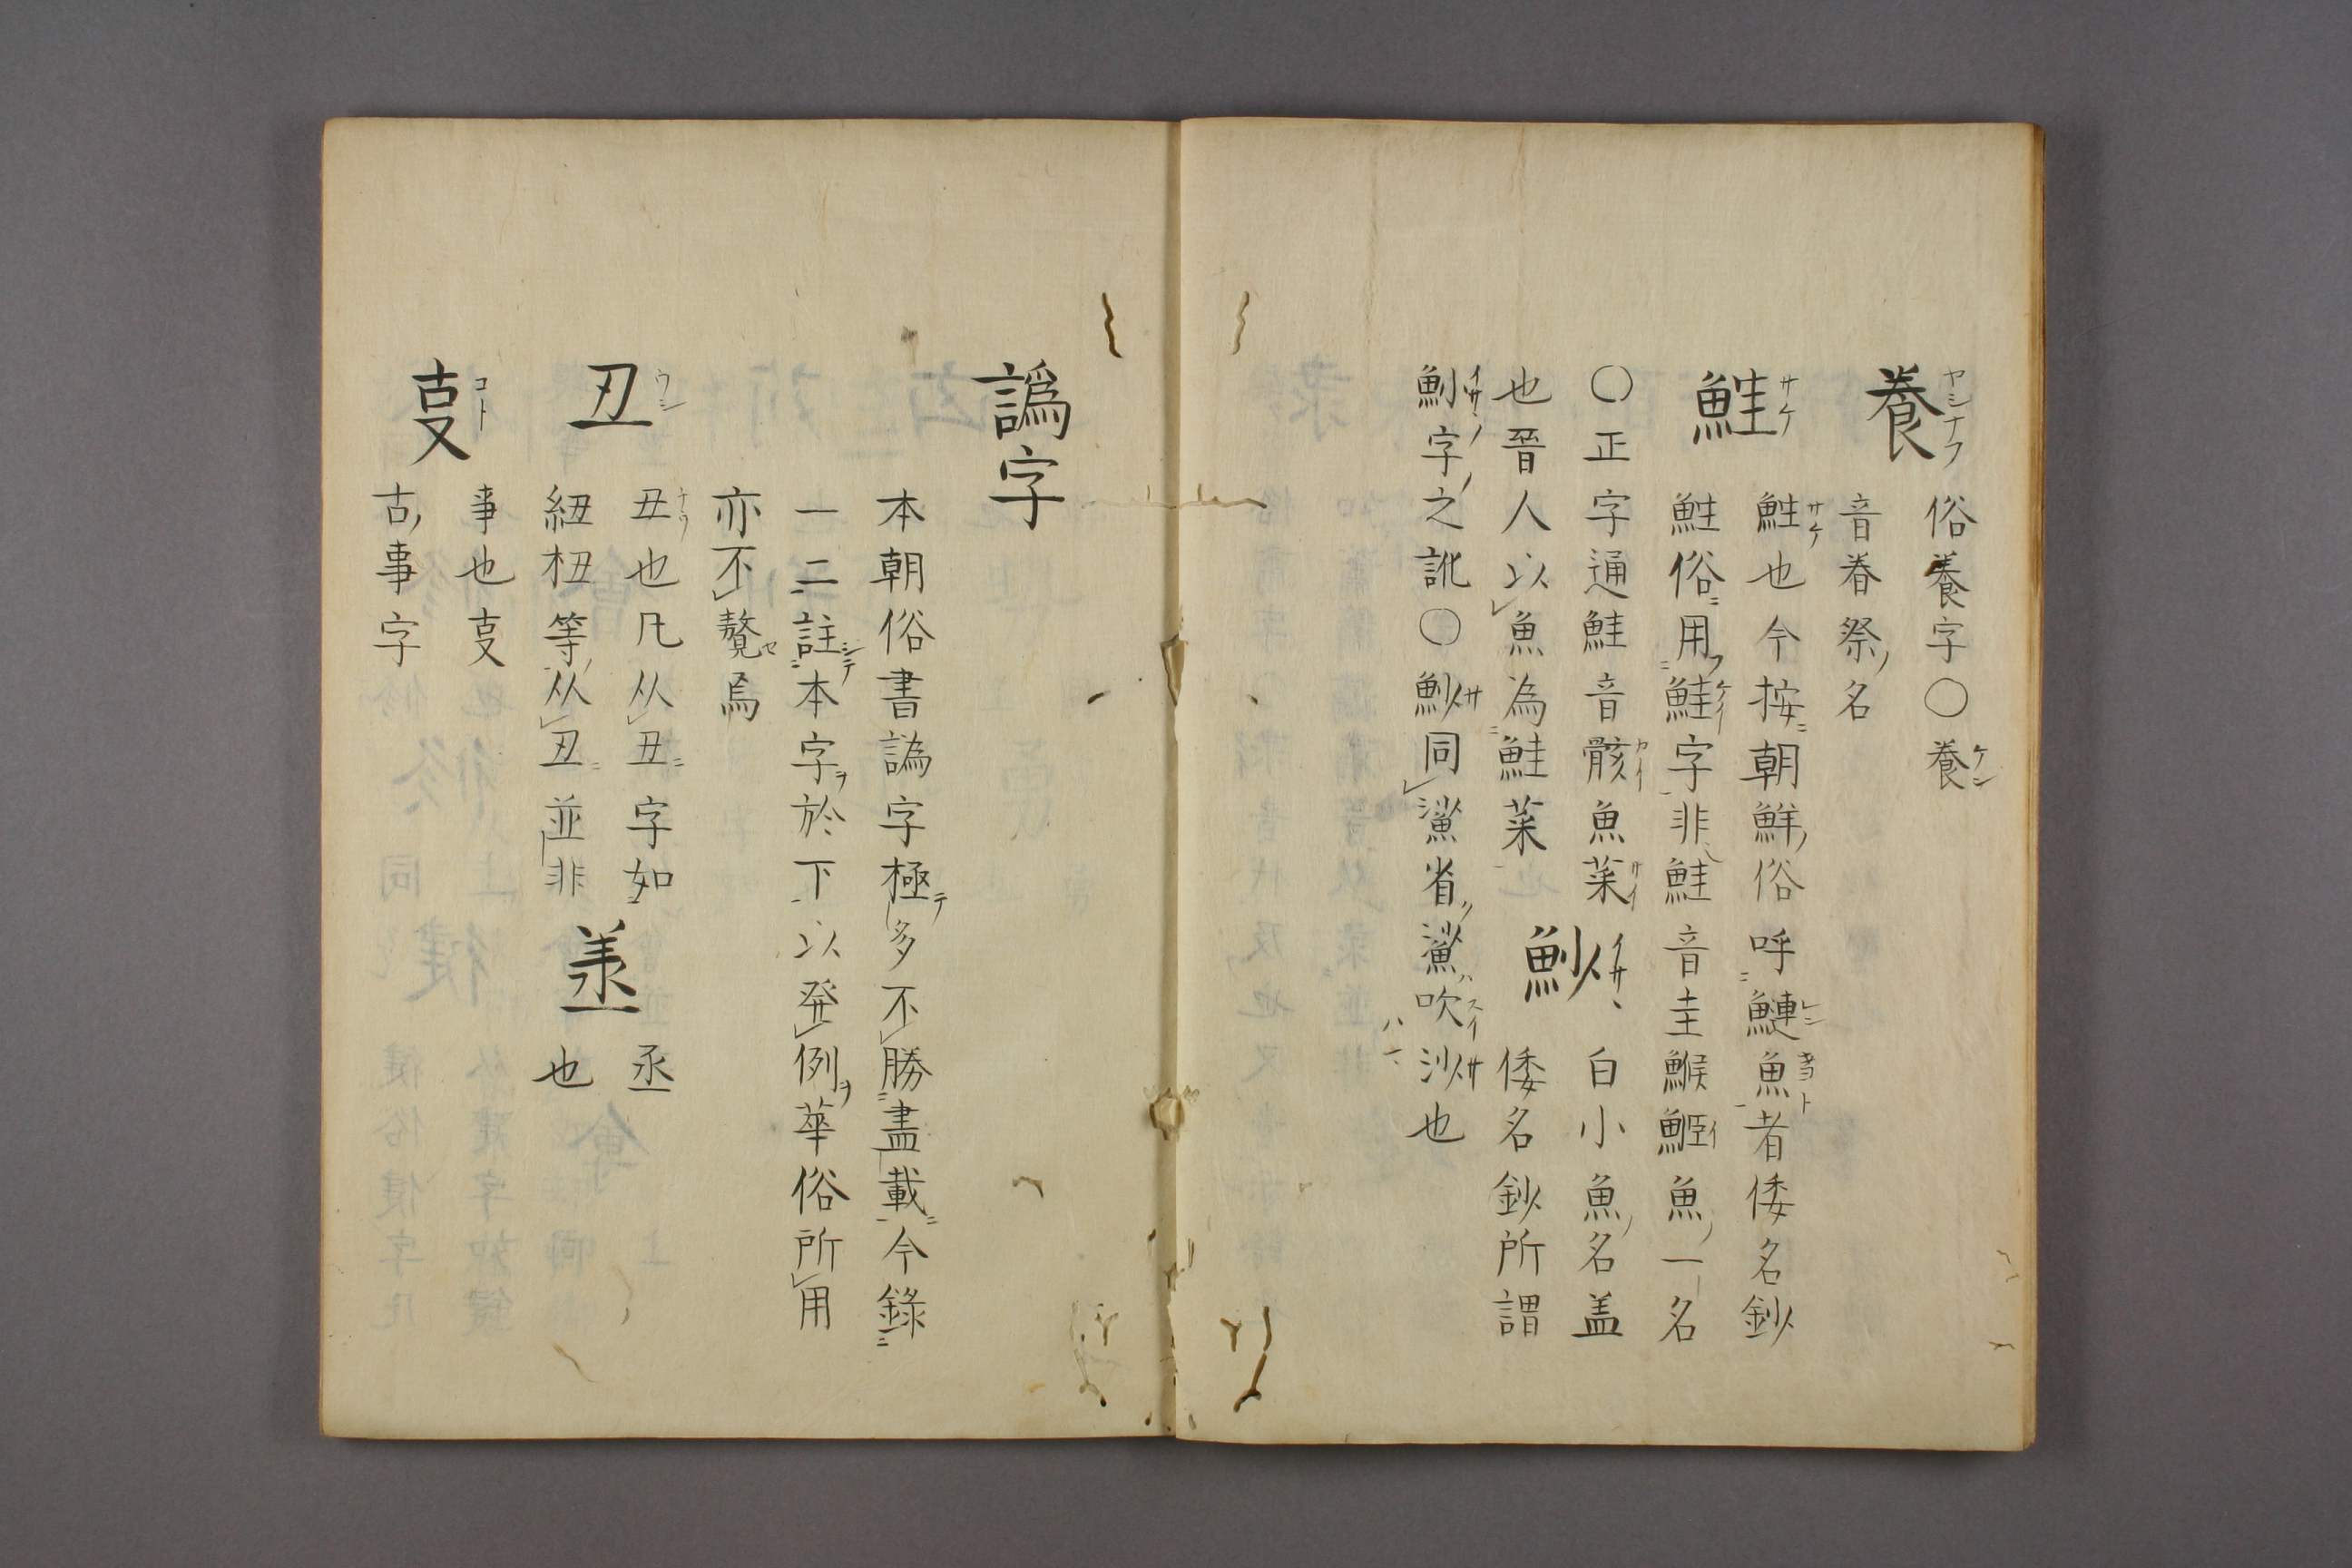 養 俗養字〇養
音眷祭名
鮭 鮭也今按朝鮮俗呼鰱魚者倭名鈔
鮭俗用鮭字非鮭音圭鯸䱌魚一名
〇正字通鮭音骸魚菜 魦 白小魚名盖
也晉人以魚為鮭菜 倭名鈔所謂
魦字之訛〇魦同鯊省鯊吹沙也
譌字
本朝俗書譌字極多不勝盡載今錄
一二註本字於下以発例華俗所用
亦不贅焉
丑 丑也凡从丑字如 丞
紐杻等从丑並非 也
叓 事也叓
古事字